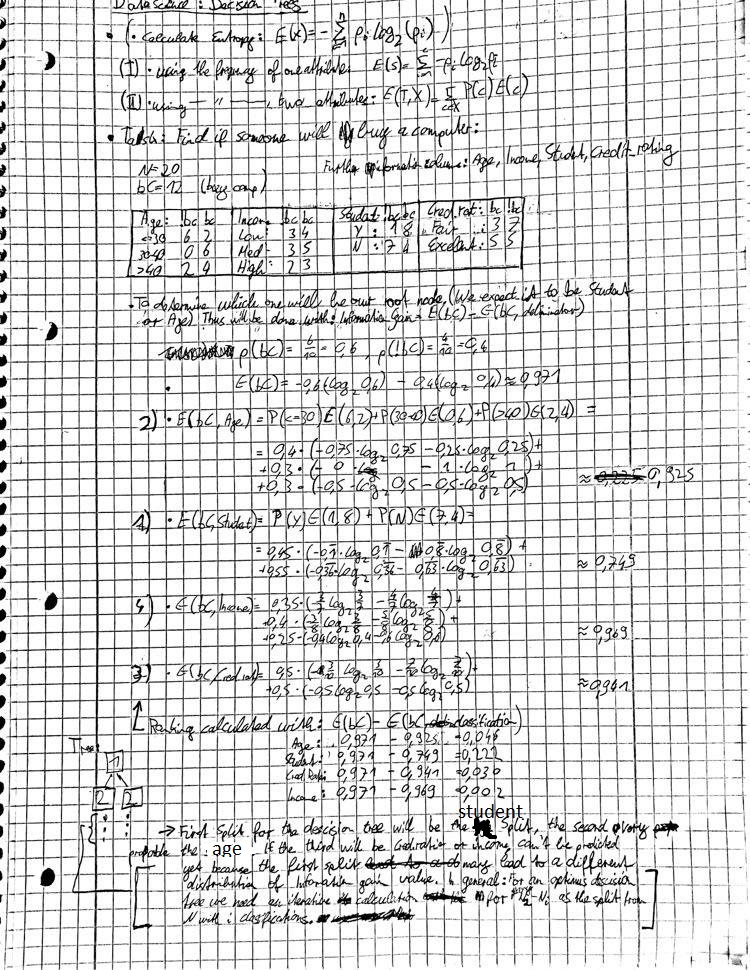 Datascience: Decision Trees
• (• Calculate Entropy: E(x) = - Σ pi log2(pi) )
(I) • using the frequency of one attribute: E(S) = Σ -pi log2 pi
(II) • using — " — , two attributes: E(T,X) = Σ P(c) E(c)
• Task: Find if someone will buy a computer:
N=20
bC=12 (buys comp)
Further information column: Age, Income, Student, Credit_rating
Age: !bc bc
<=30 6 2
30-40 0 6
>40 2 4
Income !bc bc
Low: 3 4
Med: 3 5
High: 2 3
Student: !bc bc
Y : 1 8
N : 7 4
Cred.rat: bc !bc
Fair : 3 7
Excellent: 5 5
• To determine which one will be our root node, (We expect it to be Student
or Age) Thus will be done with: Information gain = E(bC) - E(bC, )
p(bC) = 6/10 = 0,6 , p(!bC) = 4/10 = 0,4
• E(bC) = -0,6(log2 0,6) - 0,4(log2 0,4) ≈ 0,971
2) • E(bC, Age) = P(<=30)E(6,2)+P(30-40)E(0,6)+P(>40)E(2,4) =
= 0,4 · (-0,75·log2 0,75 - 0,25·log2 0,25)+
+0,3 · (- 0 · - 1 · log2 1)+
+0,3 · (-0,5·log2 0,5 - 0,5·log2 0,5) ≈ 0,925
1) • E(bC, Student) = P(Y)E(1,8) + P(N)E(7,4) =
= 0,45 · (-0,1·log2 0,1 - 0,8·log2 0,8) +
+0,55 · (-0,36·log2 0,36 - 0,63·log2 0,63) ≈ 0,749
4) • E(bC, Income) = 0,35 · (-3/7 log2 3/7 - 4/7 log2 4/7) +
+0,4 · (-3/8 log2 3/8 - 5/8 log2 5/8) +
+0,25 · (-0,4 log2 0,4 - 0,6 log2 0,6) ≈ 0,969
3) • E(bC, Cred rat) = 0,5 · (-3/10 log2 3/10 - 7/10 log2 7/10)+
+0,5 · (-0,5 log2 0,5 - 0,5 log2 0,5) ≈ 0,941
Ranking calculated with: E(bC) - E(bC, classification)
Age: 0,971 - 0,925 = 0,046
Student: 0,971 - 0,749 = 0,222
Cred Rat: 0,971 - 0,941 = 0,030
Income: 0,971 - 0,969 = 0,002
Tree:
1
2 2
→ First split for the descision tree will be the student Split, the second very
propable the age . If the third will be Cedratio or income, can't be predicted
yet because the first split may lead to a different
distribution of Information gain value. In general: For an optimus descision
tree we need an iterative calculation for - Ni as the split from
N with i clasfications.